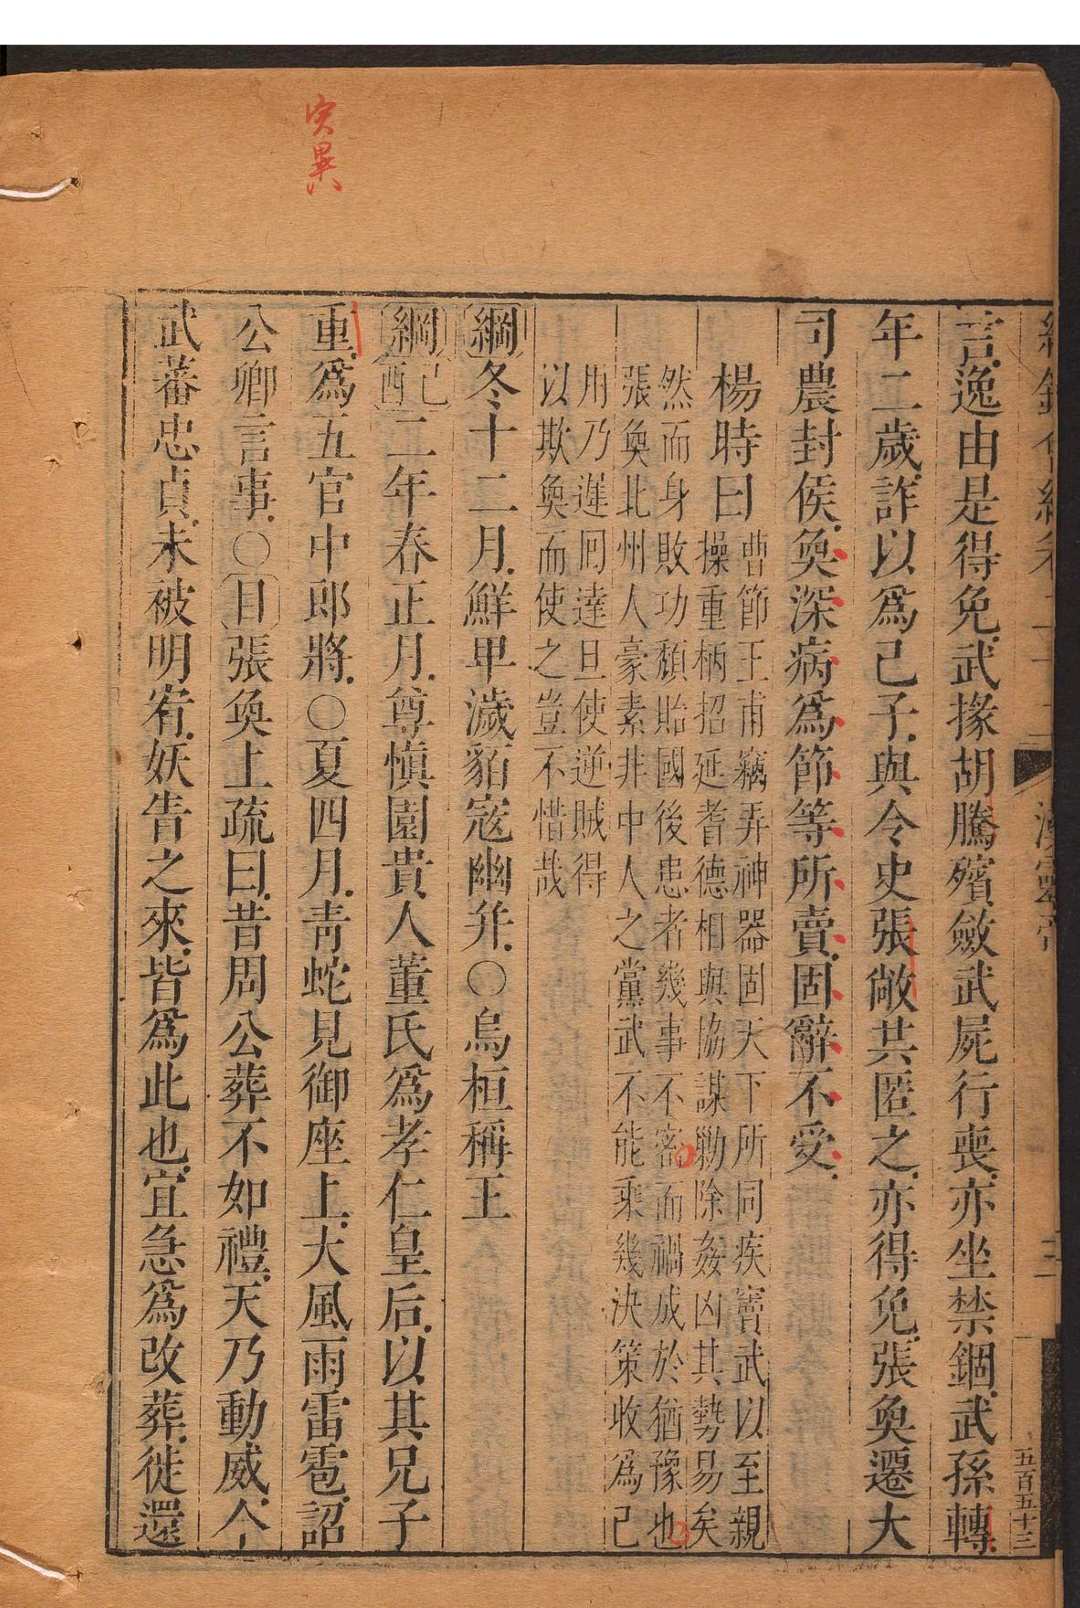 言逸由是得免武掾胡騰殯斂武屍行喪亦坐禁錮武孫轉
年二歲詐以爲己子與令史張敞共匿之亦得免張奐遷大
司農封侯奐深病爲節等所賣固辭不受
楊時曰
曹節王甫竊弄神器固天下所同疾竇武以至親
操重柄招延耆德相與協謀勦除姦凶其勢易矣
然而身敗功頹貽國後患者幾事不密而禍成於猶豫也
張奐北州人豪素非中人之黨武不能乘幾決策收爲己
用乃遲囘達旦使逆賊得
以欺奐而使之豈不惜哉
綱冬十二月鮮卑濊貊寇幽并〇烏桓稱王
綱己酉二年春正月尊慎園貴人董氏爲孝仁皇后以其兄子
重爲五官中郎將〇夏四月青蛇見御座上大風雨雷雹詔
公卿言事〇目張奐上疏曰昔周公葬不如禮天乃動威今
武蕃忠貞未被明宥妖眚之來皆爲此也宜急爲改葬徙還
五百五十三
災異